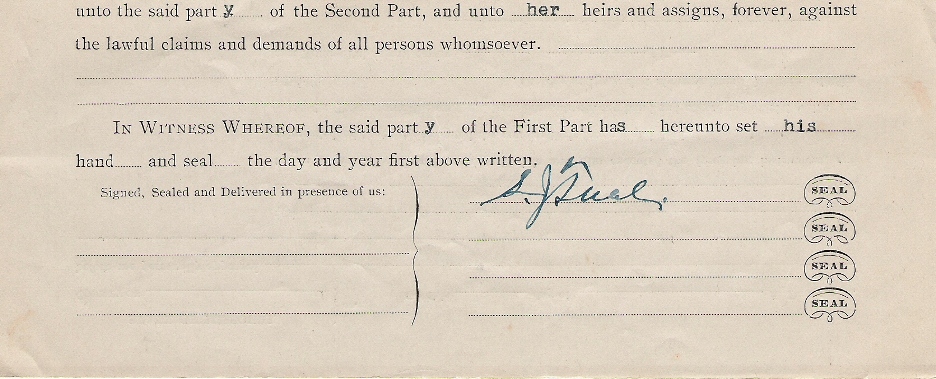 unto the said party of the Second Part, and unto her heirs and assigns, forever, against
the lawful claims and demands of all persons whomsoever.
IN WITNESS WHEREOF, the said party of the First Part has hereunto set his
hand and seal the day and year first above written.
Signed, Sealed and Delivered in presence of us:
S. J.
SEAL
SEAL
SEAL
SEAL